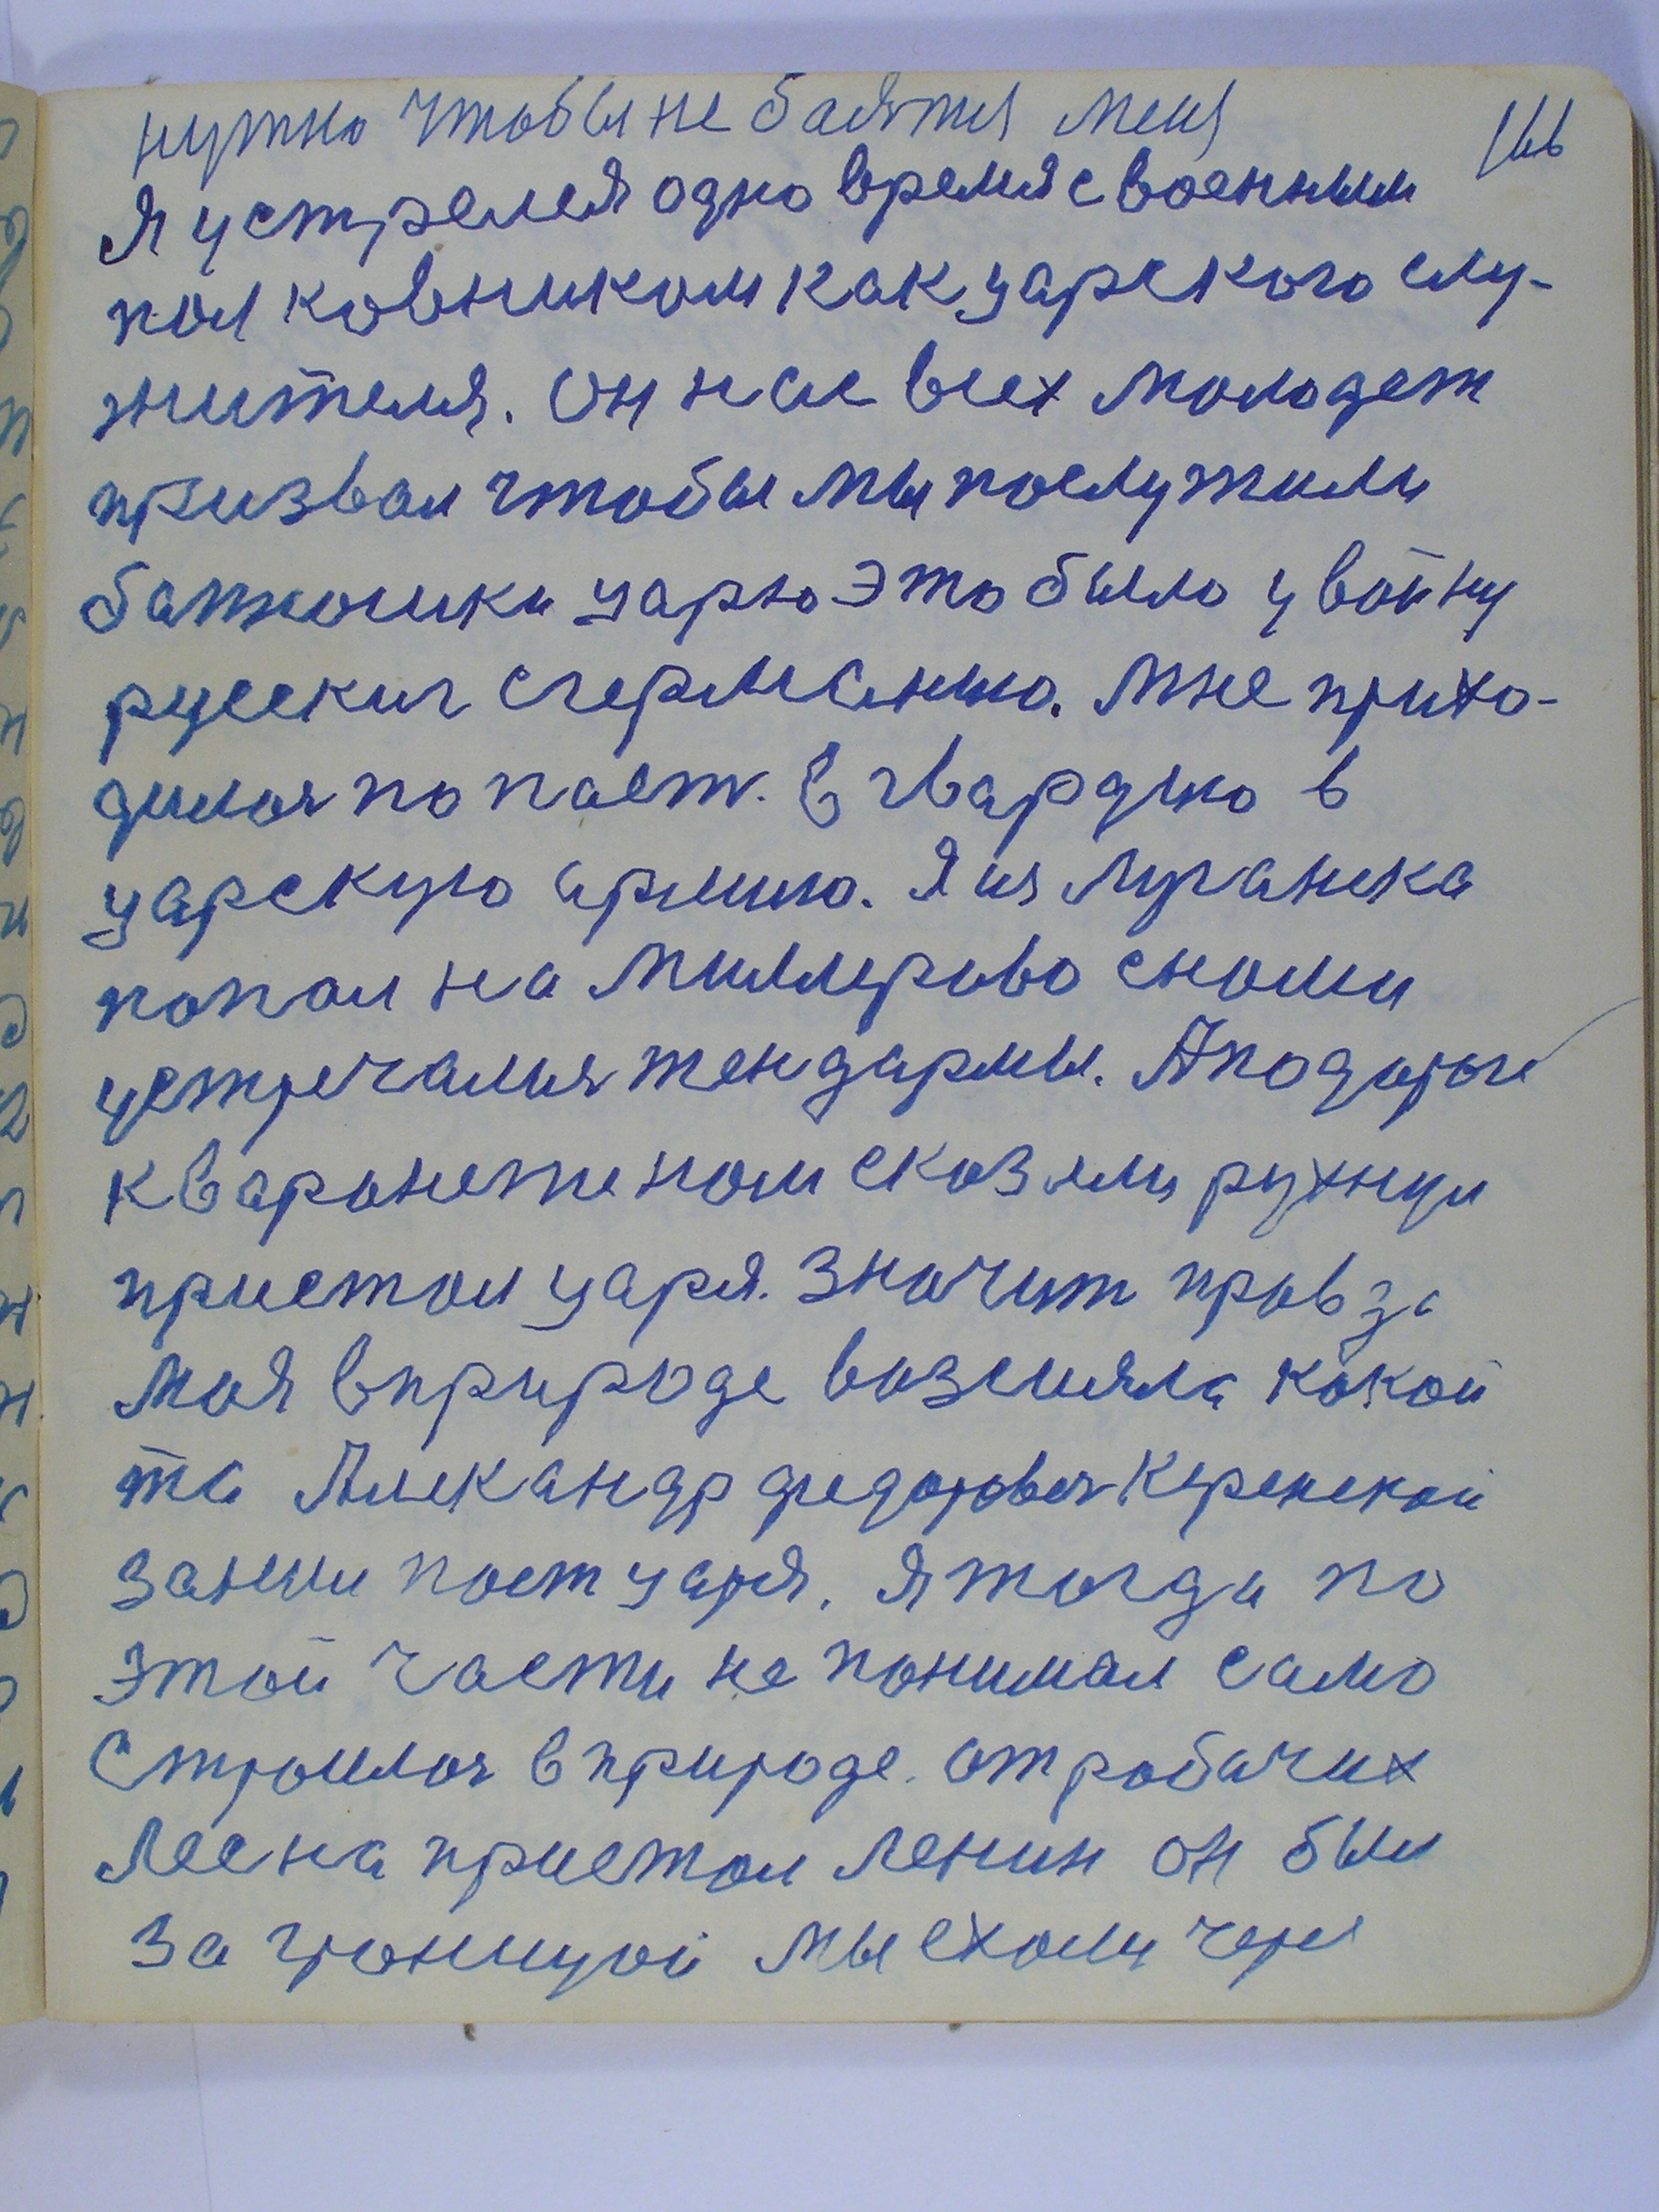 нужно чтобы не баятся меня
166
Я устрелся одно время с военным
полковником как царского слу-
жителя. Он нас всех молодеж
призвал чтобы мы послужили
батюшки царю это было у войну
русских с германию. Мне прихо-
дилося попаст. в гвардию в
царскую армию. Я из Луганска
попал на Миллерово с нами
устречалися жендармы. А по дороге
к Варонеже нам сказали рухнул
пристол царя. Значит правда
моя в природе возсияла какой
та Александр федорович Керенской
занял пост царя. Я тогда по
этой части не понимал само
строилося в природе. от рабачих
Лес на пристол Ленин он был
за границой мы ехали через